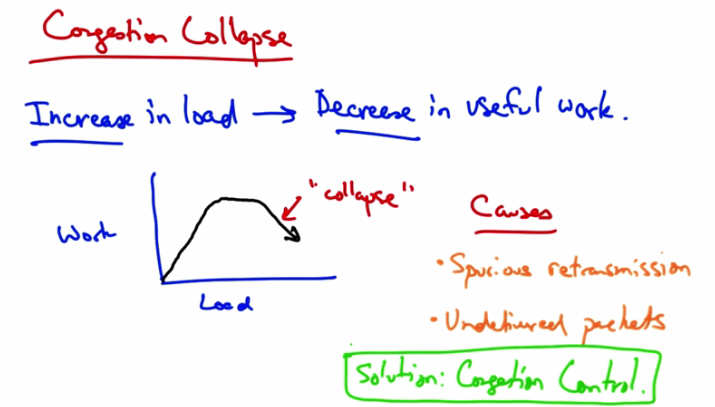 Congestion Collapse
Increase in load → Decrease in useful work.
"collapse"
Work
Load
Causes
• Spurious retransmission
• Undelivered packets
Solution: Congestion Control.